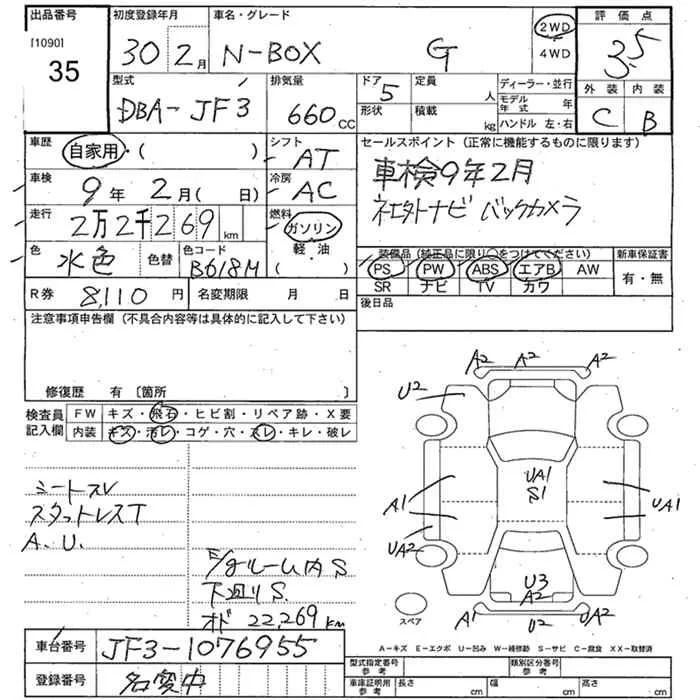 出品番号
[1090]
35
初度登録年月
30 2月
車名・グレード
N-BOX G
2WD
4WD
評価点
3.5
外装 内装
C B
型式
DBA-JF3
排気量
660cc
ドア
5
形状
定員
人
積載
kg
ディーラー・並行
モデル年式 年
ハンドル 左・右
車歴
自家用・( )
車検
9年 2月( 日)
走行
2万2千269km
色
水色
色替
色コード
B618M
シフト
AT
冷房
AC
燃料
ガソリン
軽・油
( )
セールスポイント(正常に機能するものに限ります)
車検9年2月
社外ナビ バックカメラ
装備品(純正品に限り○をつけてください)
PS PW ABS エアB AW
SR ナビ TV カワ
新車保証書
有・無
R券 8,110円
名変期限 月 日
後日品
注意事項申告欄(不具合内容等は具体的に記入して下さい)
修復歴 有〔箇所 〕
検査員記入欄
FW キズ・飛石・ヒビ割・リペア跡・X要
内装 キズ・汚レ・コゲ・穴・スレ・キレ・破レ
シートスレ
スタットレスT
A.U.
E/gルーム内S
下廻りS.
オド 22,269km
A2 A2 A2
U2
A1
UA2
UA1
S1
UA1
U3
A2
A1 U2 UA2
スペア
車台番号 JF3-1076955
登録番号 名変中
A-キズ E-エクボ U-凹み W-補修跡 S-サビ C-腐食 XX-取替済
型式指定番号
参考
類別区分番号
参考
車庫証明用
参考
長さ cm
幅 cm
高さ cm